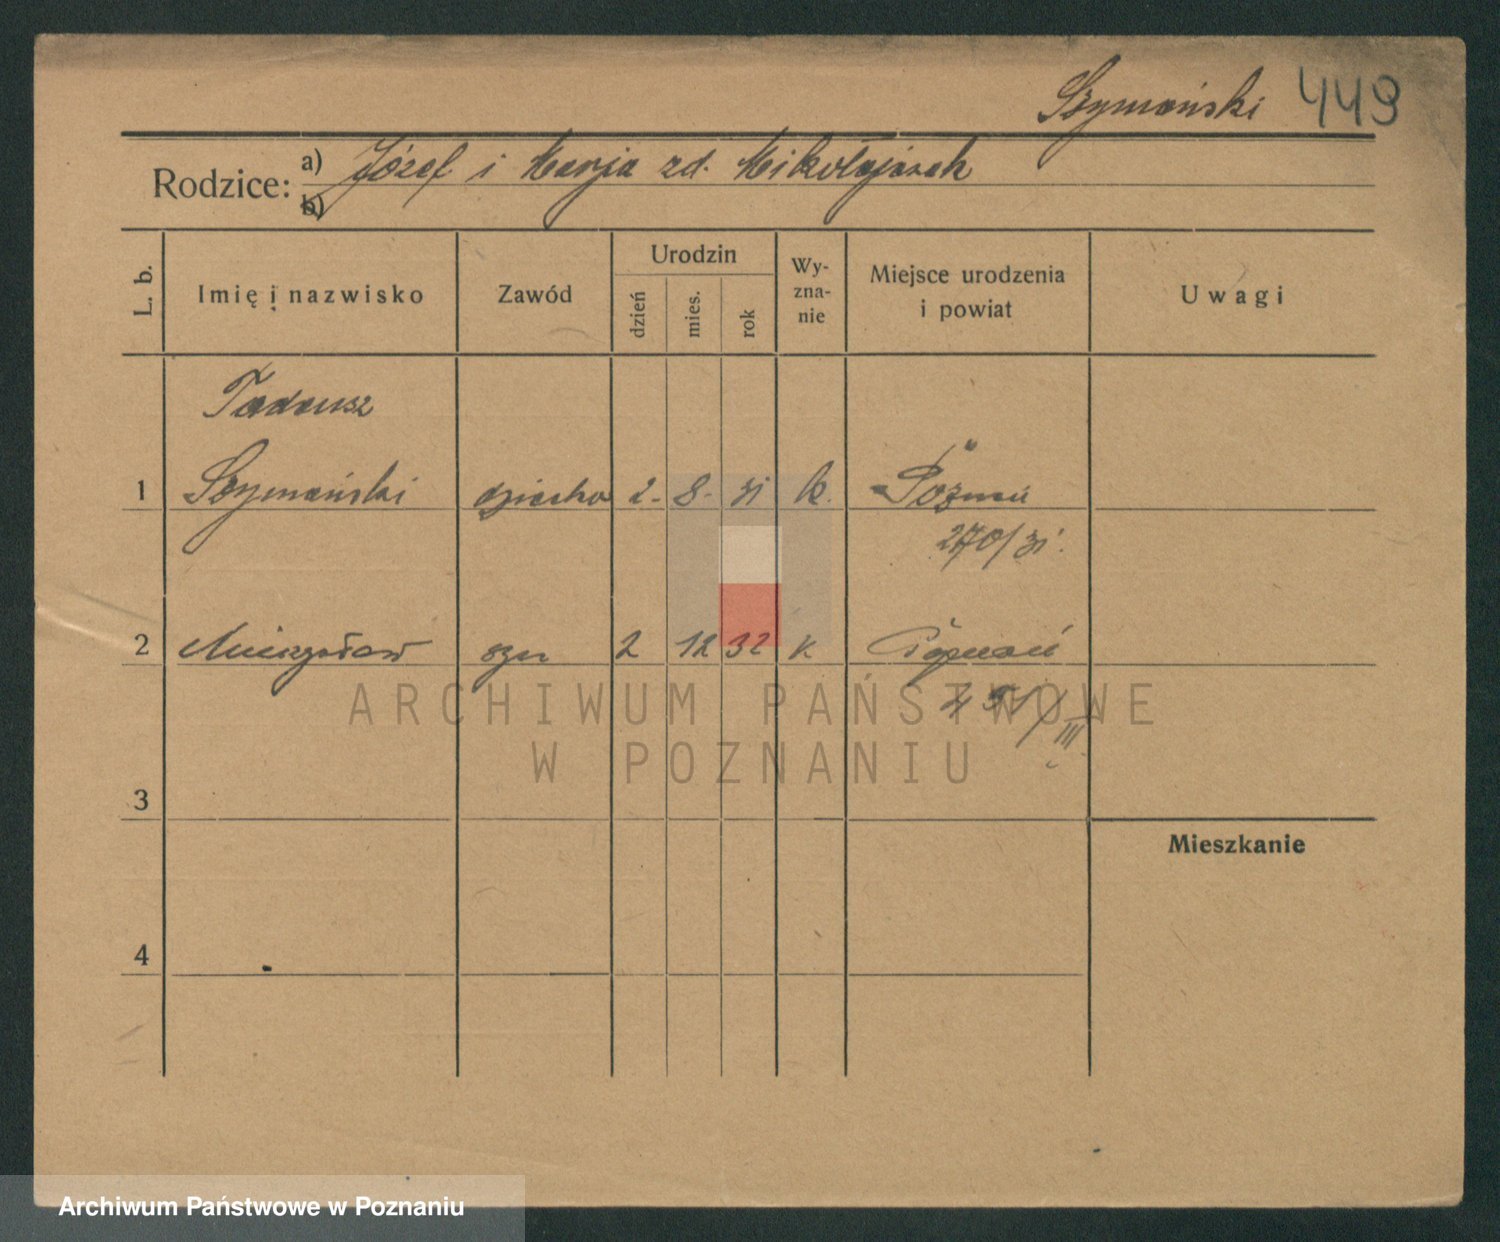 Szymański 449
Rodzice: a) Józef i Marja zd. Mikołajczak
b)
L. b.
Imię i nazwisko
Zawód
Urodzin
dzień
mies.
rok
Wy-
zna-
nie
Miejsce urodzenia
i powiat
Uwagi
Tadeusz
1 Szymański dziecko 2. 8. 31 k. Poznań
270/31.
2 Mieczysław syn 2 12 32 k Poznań
III
ARCHIWUM PAŃSTWOWE
W POZNANIU
3
Mieszkanie
4
Archiwum Państwowe w Poznaniu